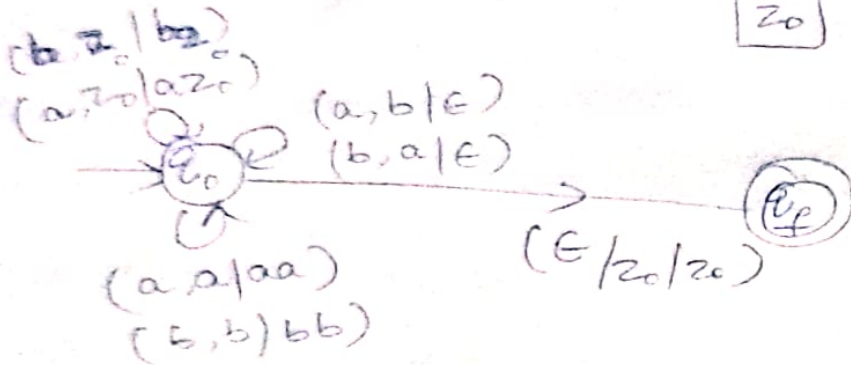 z0
(b, z0 | bz0)
(a, z0 | az0)
(a, b | ε)
(b, a | ε)
q0
qf
(ε / z0 / z0)
(a, a | aa)
(b, b) bb)